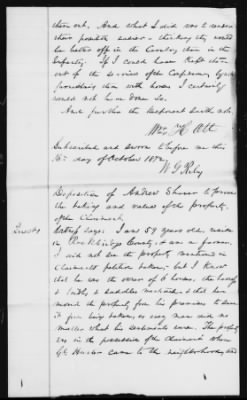 them out. And what I did was to
their possible — thinking they would
be better off in the Cavalry than in the
Infantry. If I could have kept them
out of the service of the Confederacy by
furnishing them with horses I certainly
would not have done so.
And further the deponent saith not.
Wm H. Alt
Subscribed and sworn before me this
16 day of October 1872.
W G Riley
Deposition of Andrew Showes to prove
the taking and value of the property
of the Claimant.
Witness says: I am 59 years old, reside
in Rockbridge County, & am a farmer.
I did not see the property mentioned in
Claimant's petition taken; but I know
that he was the owner of 6 horses, the
& bridles & saddles mentioned, & that he
moved the property from his premises to save
it from being taken, as every man did no
matter what his sentiments were. The property
was in the possession of the claimant when
Gl. Hunter came to the neighborhood, and